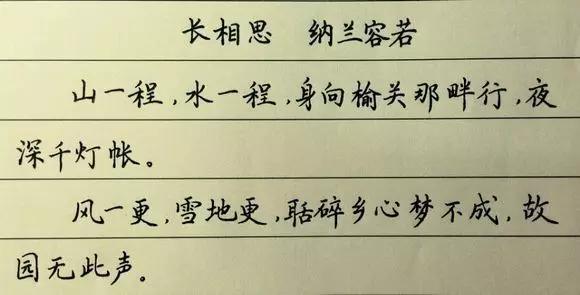 长相思 纳兰容若
山一程,水一程,身向榆关那畔行,夜
深千灯帐。
风一更,雪地更,聒碎乡心梦不成,故
园无此声。